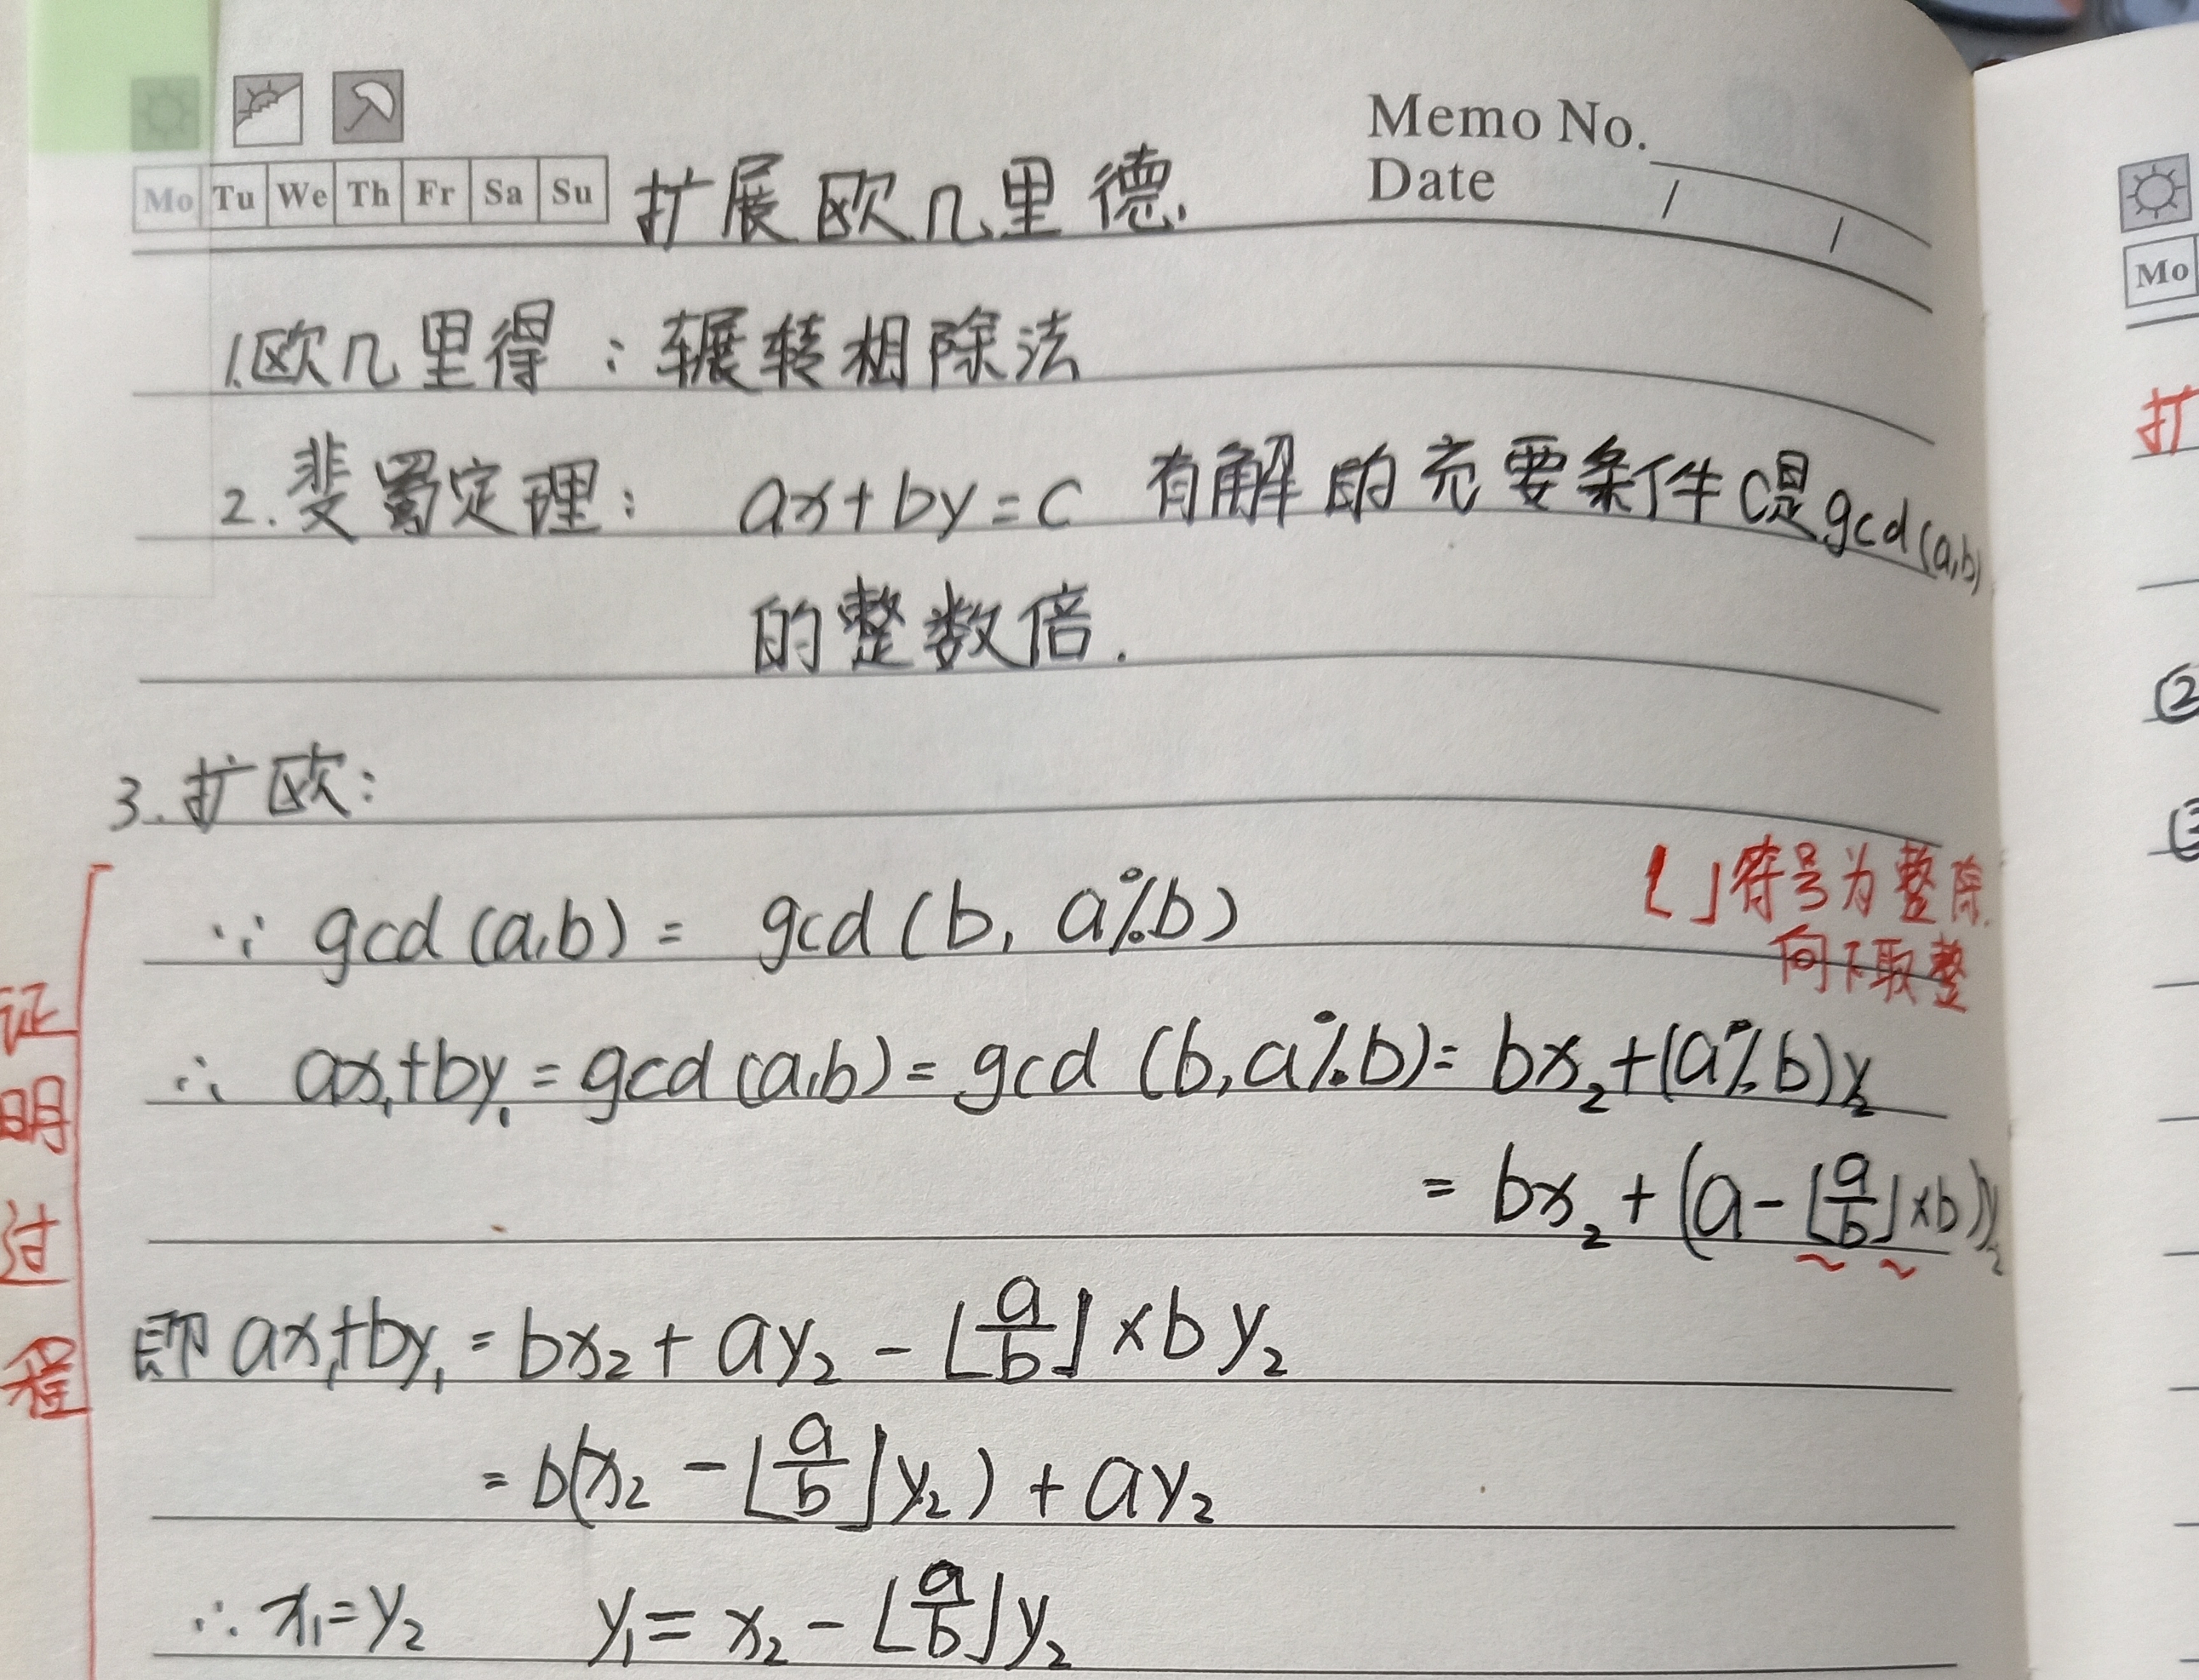 Memo No.
Date / /
Mo Tu We Th Fr Sa Su
扩展欧几里德.
1.欧几里得：辗转相除法
2.斐蜀定理： ax+by=c 有解的充要条件c是gcd(a,b)
的整数倍.
3.扩欧：
⌊ ⌋符号为整除.
向下取整
证明过程
∵ gcd(a,b) = gcd(b, a%b)
∴ ax₁+by₁ = gcd(a,b) = gcd(b,a%b) = bx₂+(a%b)y₂
= bx₂ + (a-⌊a/b⌋×b)y₂
即 ax₁+by₁ = bx₂ + ay₂ - ⌊a/b⌋×by₂
= b(x₂ - ⌊a/b⌋y₂) + ay₂
∴ x₁=y₂ y₁= x₂ - ⌊a/b⌋y₂
Mo
扩
②